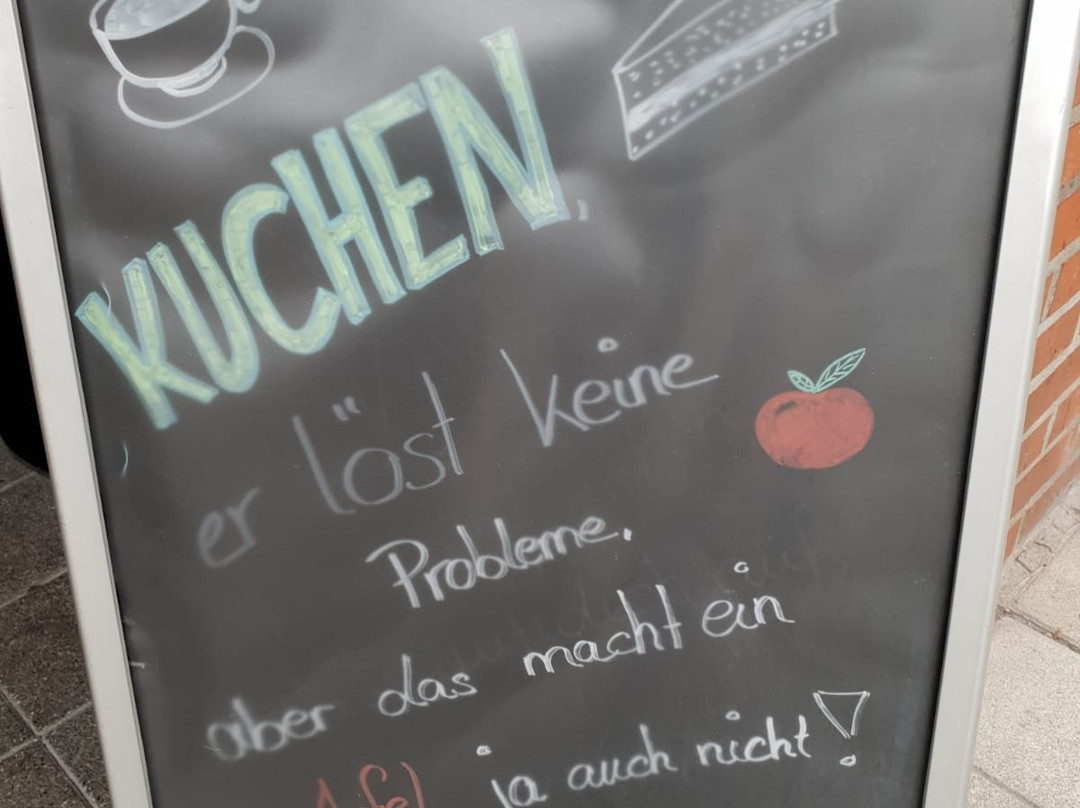 KUCHEN,
er löst keine
Probleme.
aber das macht ein
ja auch nicht!